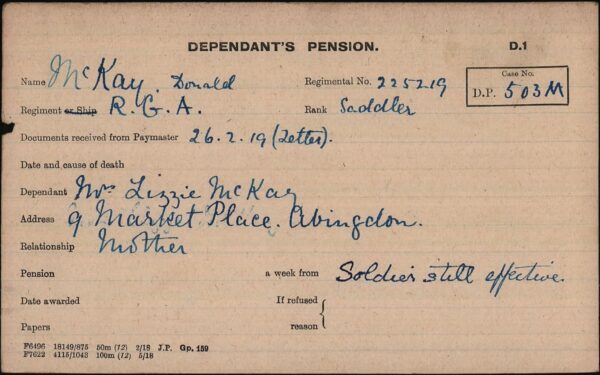 DEPENDANT'S PENSION. D.1
Name McKay. Donald Regimental No. 225219 Case No.
Regiment or Ship R.G.A. Rank Saddler D.P. 503M
Documents received from Paymaster 26.2.19 (Letter).
Date and cause of death
Dependant Mrs Lizzie McKay
Address 9 Market Place. Abingdon.
Relationship Mother
Pension a week from Soldier still effective.
Date awarded If refused
Papers reason
F6496 18149/875 50m (12) 2/18 J.P. Gp. 159
F7622 4115/1043 100m (12) 5/18